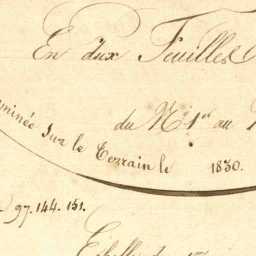 En deux Feuilles
du N.º 1er au
minée sur le Terrain le 1830.
97.144.151.
Echelle de